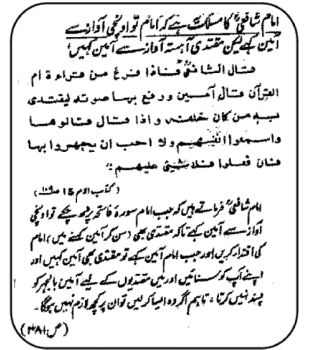 امام شافعیؒ کا مسلک ہے کہ امام تو اونچی آواز سے
آمین کہے لیکن مقتدی آہستہ آواز سے آمین کہیں؛
قال الشافعیؒ فاذا فرغ من قراءة ام
القرآن قال آمین ورفع بها صوته لیقتدی
به من كان خلفه واذا قال قالوها
واسمعوا انفسهم ولا احب ان يجهروا بها
فان فعلوا فلا شیئ علیهم :
(کتاب الام ج ۱ ص ۱۰۹)
امام شافعیؒ فرماتے ہیں کہ جب امام سورۂ فاتحہ پڑھ چکے تو اونچی
آواز سے آمین کہے تاکہ مقتدی بھی (سن کر آمین کہنے میں) امام
کی اقتداء کریں اور جب امام آمین کہے تو مقتدی بھی آمین کہیں اور
اپنے آپ کو سنائیں اور میں مقتدیوں کے لیے آمین بالجہر کو
پسند نہیں کرتا، تاہم اگر وہ ایسا کر لیں تو ان پر کچھ لازم نہیں ہوگا۔
(ص ۳۸۱)